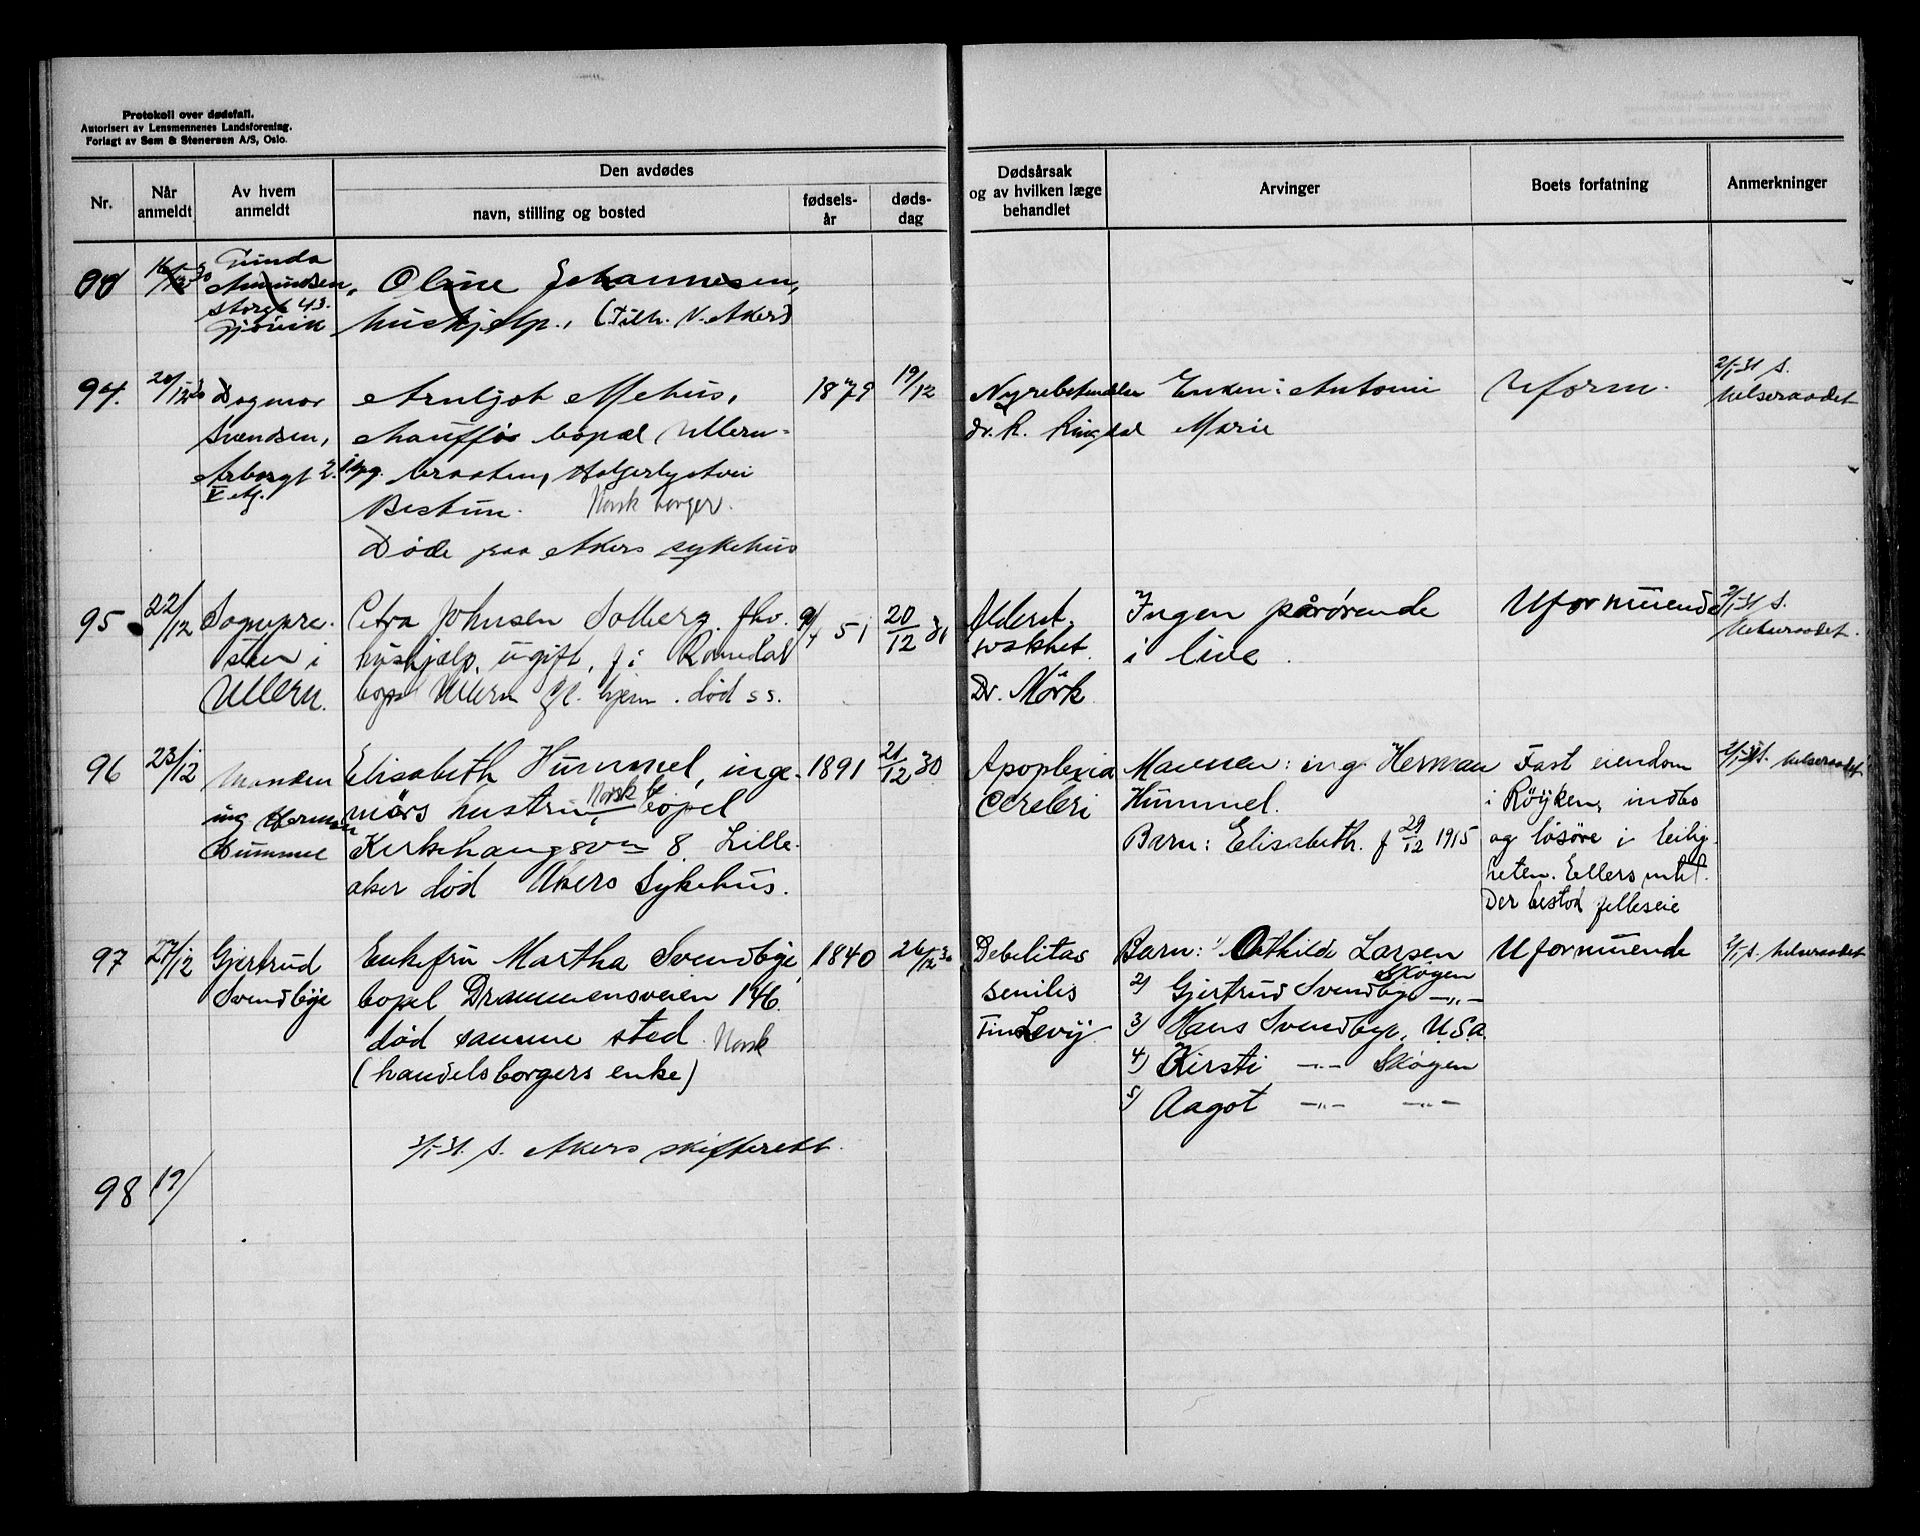 Protokoll over dødsfall.
Autorisert av Lensmennenes Landsforening.
Forlagt av Sem & Stenersen A/S, Oslo.
Nr.
Når anmeldt
Av hvem anmeldt
Den avdødes
navn, stilling og bosted
fødsels-år
døds-dag
Dødsårsak og av hvilken læge behandlet
Arvinger
Boets forfatning
Anmerkninger
Amundsen,
43.
Gjøvik
Oline Johannesen,
hushjelp, (Tilh. V. Aker)
94.
20/12 30
Dagmar
Svendsen,
2.
V etg.
Arnljot
bopæl Ullern-
braaten,
Bestun. Norsk borger.
Døde paa Akers sykehus
1879
19/12
dr. R. Ringdal
Enken: Antonie
Marie
Uform.
2/1-31 S.
Helseraadet
95
22/12
Sognepre-
sten i
Ullern.
Petra Johnsen Solberg. fhv.
hushjælp, ugift, f. i Romedal
bopl Ullern gl. hjem. død ss.
9/4 51
20/12 30
Alderd.
svakhet.
Dr. Mörk
Ingen pårørende
i live.
Uformuende
2/1-31 S.
Helseraadet.
96
23/12
Manden
ing Herman
Hummel
Elisabeth Hummel, inge-
niørs hustru, Norsk bopel
Kirkehaugsvn 8. Lille-
aker død Akers Sykehus.
1891
21/12 30
Apoplexia
cerebri
Mannen: ing Herman
Hummel.
Barn: Elisabeth. f 29/12 1915
Fast eiendom
i Röyken, indbo
og lösöre i leilig-
heten. Ellers intet.
Der bestod felleseie
2/1-31 S. Helseraadet
97
27/12
Gjertrud
Svendbye
Enkefru Martha Svendbye,
bopel Drammensveien 146.
död samme sted. Norsk
(handelsborgers enke)
1840
26/12 30
Debilitas
senilis
Barn: 1) Othilde Larsen
Skøyen
2) Gjertrud Svendbye —"—
3) Hans Svendbye, U.S.A.
4) Kirsti —"— Skøyen
5) Aagot —"— —"—
Uformuende
2/1 S. Helseraadet
2/1-31. S. Akers skifterett.
98
19/